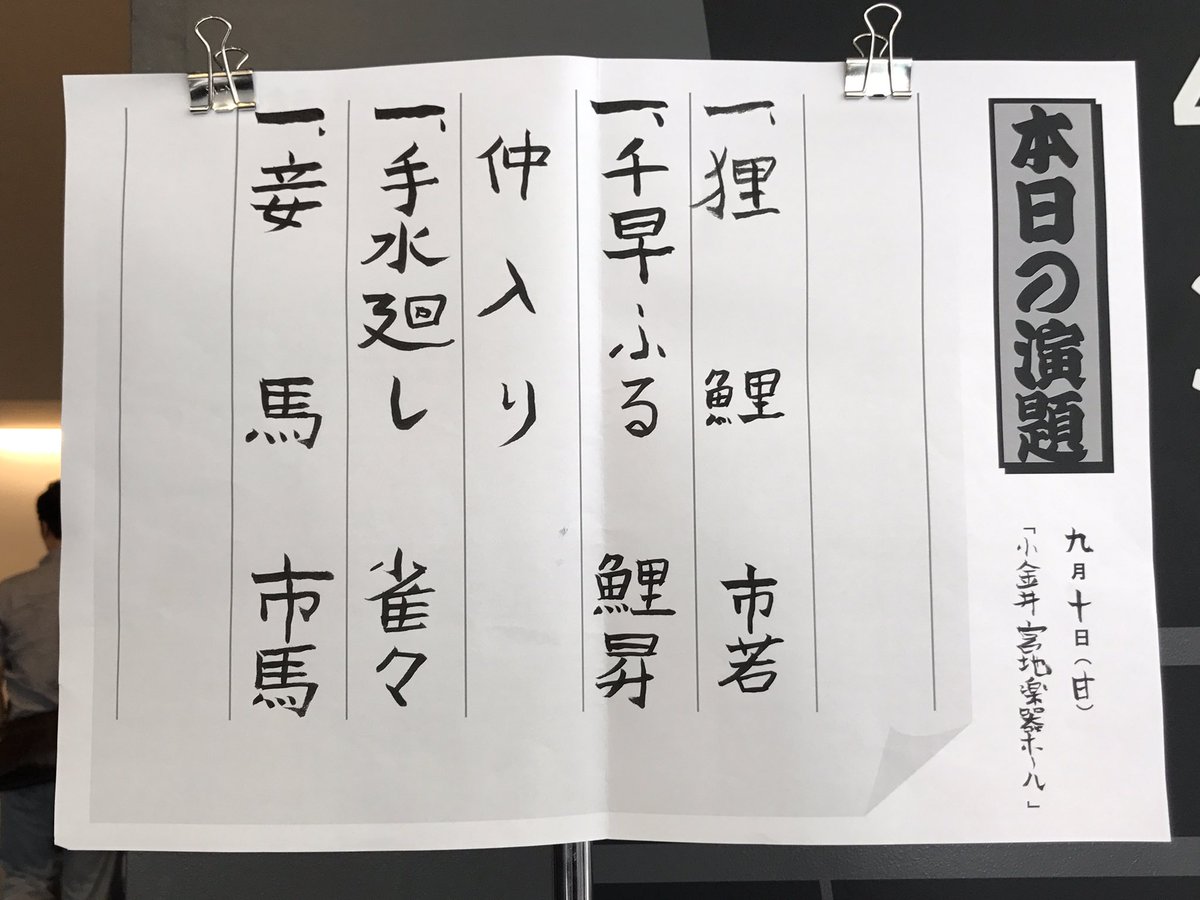 本日の演題
九月十日(日)
「小金井宮地楽器ホール」
一、狸鯉 市若
一、千早ふる 鯉昇
仲入り
一、手水廻し 雀々
一、妾馬 市馬